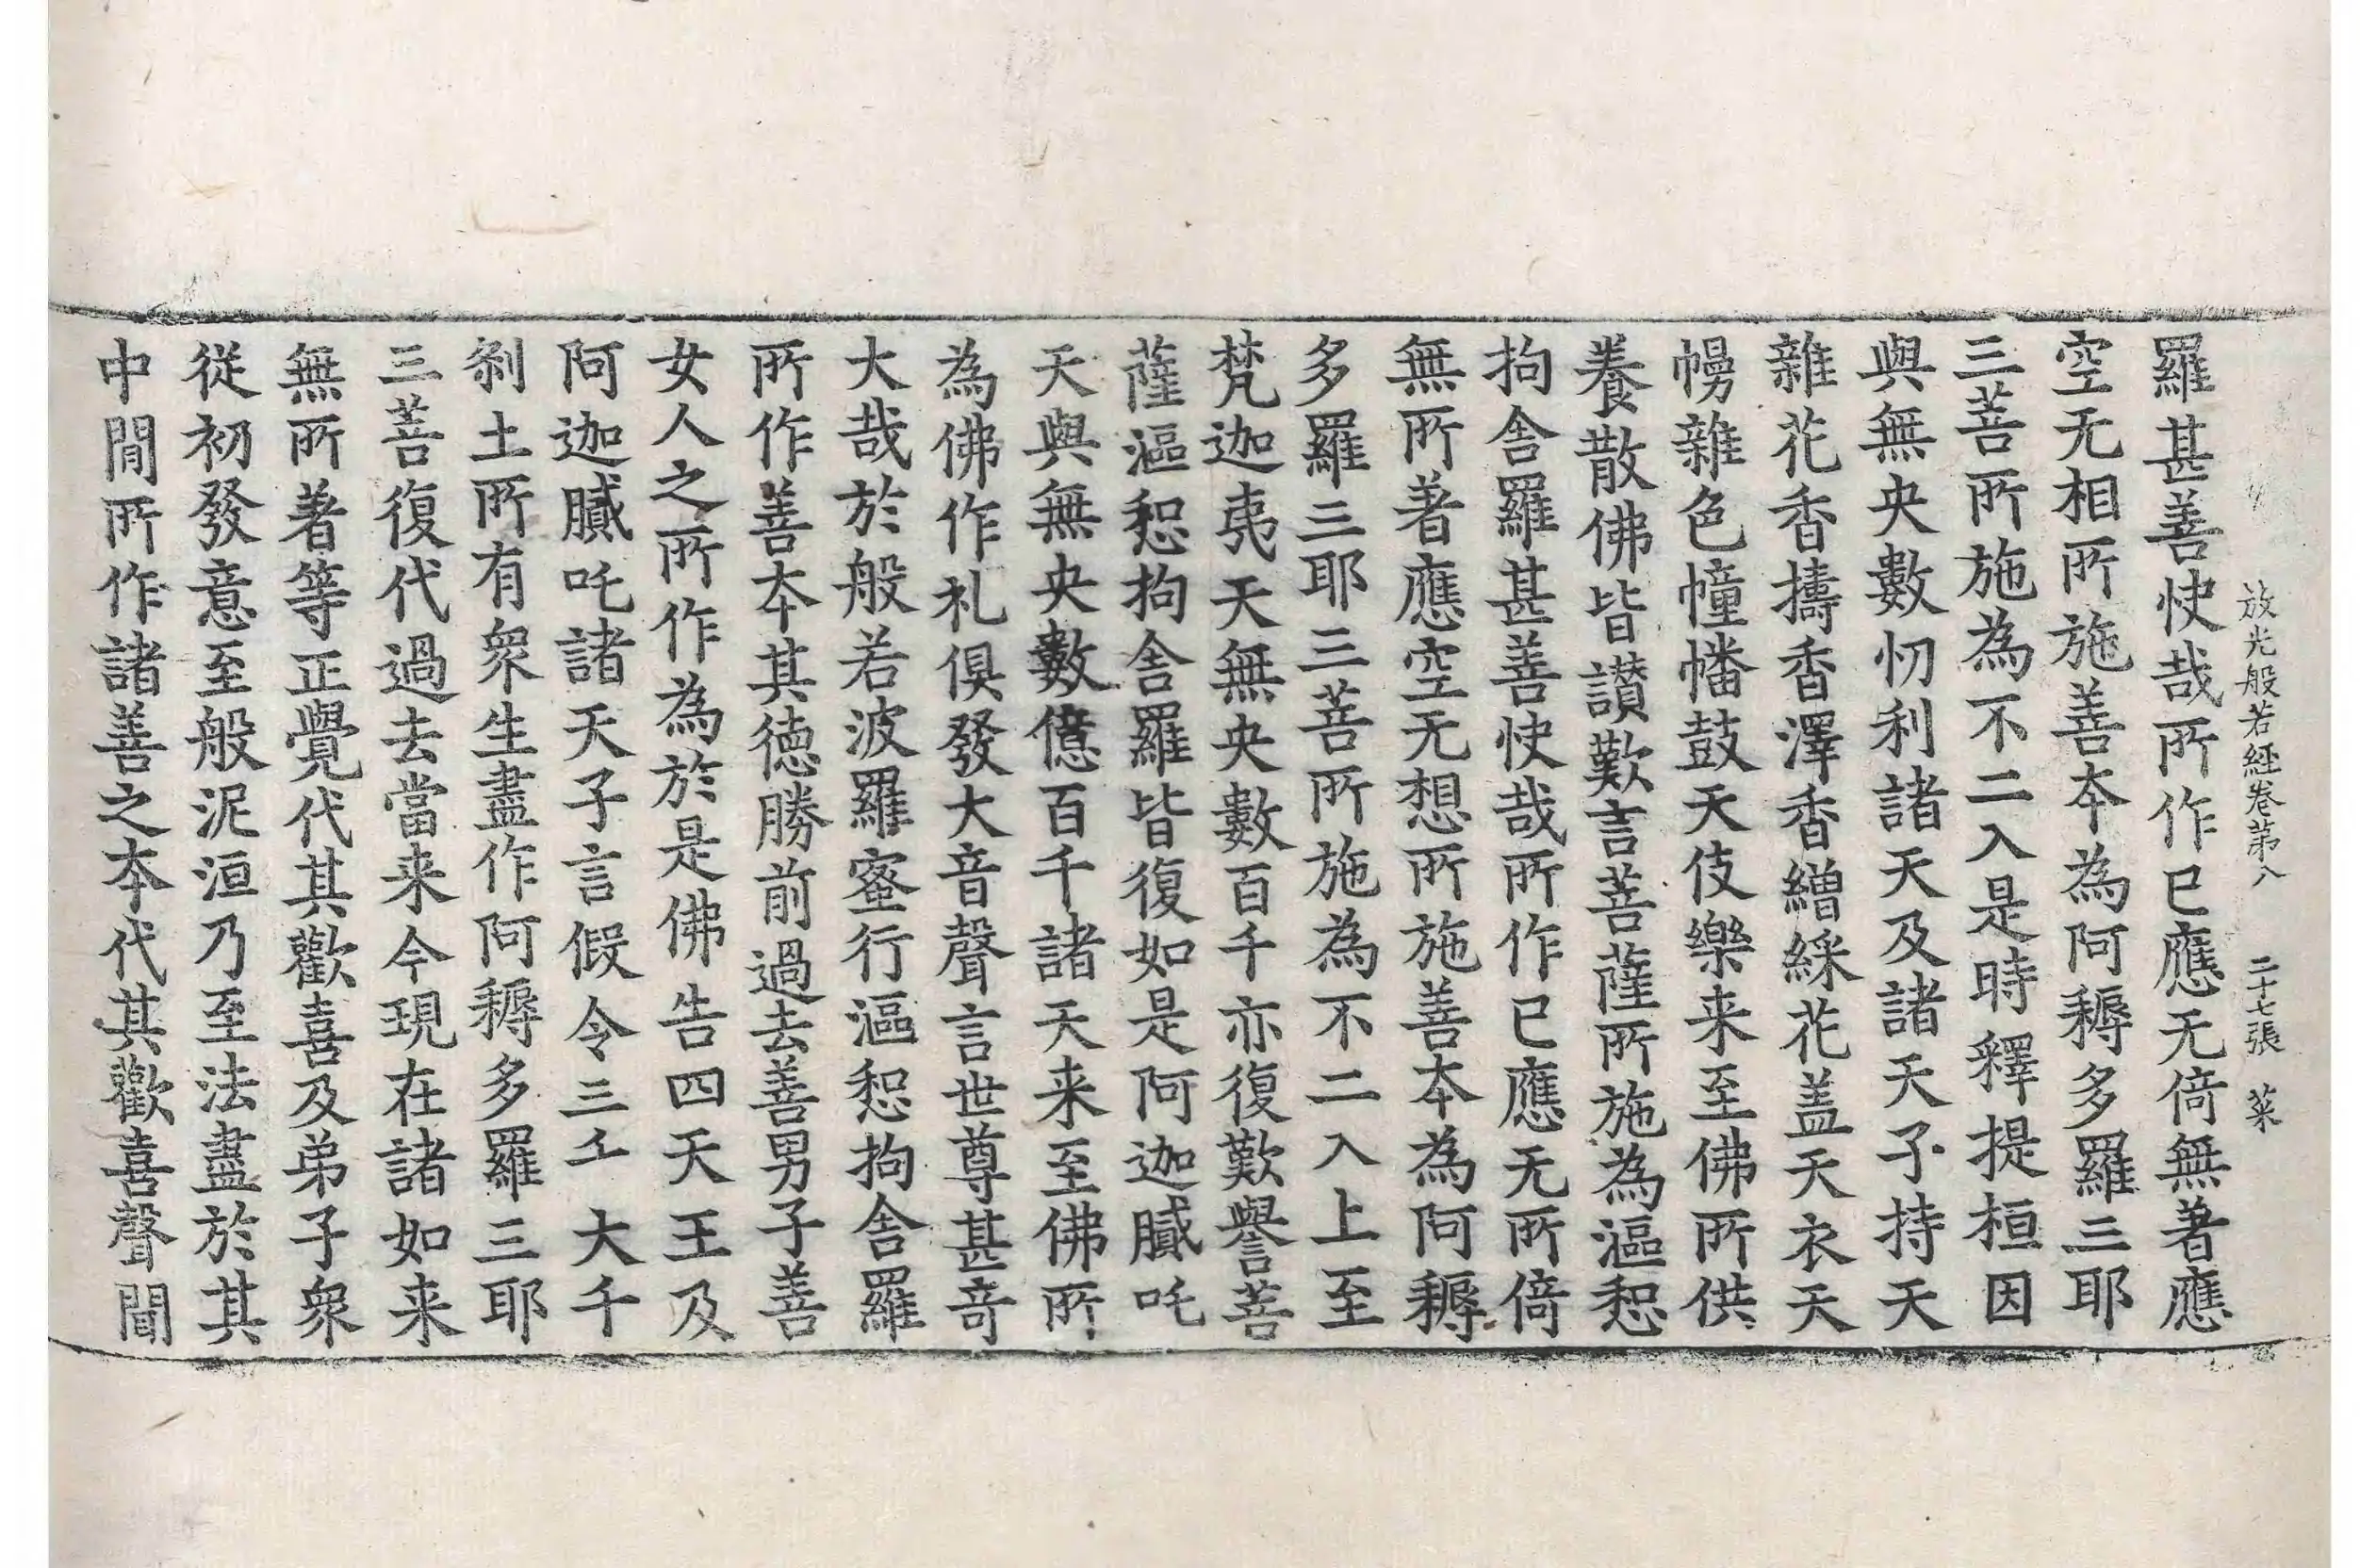 放光般若經卷第八　二十七張　菜
羅甚善快哉所作已應无倚無著應
空无相所施善本為阿耨多羅三耶
三菩所施為不二入是時釋提桓因
與無央數忉利諸天及諸天子持天
雜花香擣香澤香繒綵花盖天衣天
幔雜色幢幡鼓天伎樂来至佛所供
養散佛皆讃歎言菩薩所施為漚惒
拘舍羅甚善快哉所作已應无所倚
無所著應空无想所施善本為阿耨
多羅三耶三菩所施為不二入上至
梵迦夷天無央數百千亦復歎譽菩
薩漚惒拘舍羅皆復如是阿迦膩吒
天與無央數億百千諸天来至佛所
為佛作礼俱發大音聲言世尊甚奇
大哉於般若波羅蜜行漚惒拘舍羅
所作善本其德勝前過去善男子善
女人之所作為於是佛告四天王及
阿迦膩吒諸天子言假令三千大千
剎土所有眾生盡作阿耨多羅三耶
三菩復代過去當来今現在諸如来
無所著等正覺代其歡喜及弟子眾
從初發意至般泥洹乃至法盡於其
中間所作諸善之本代其歡喜聲聞